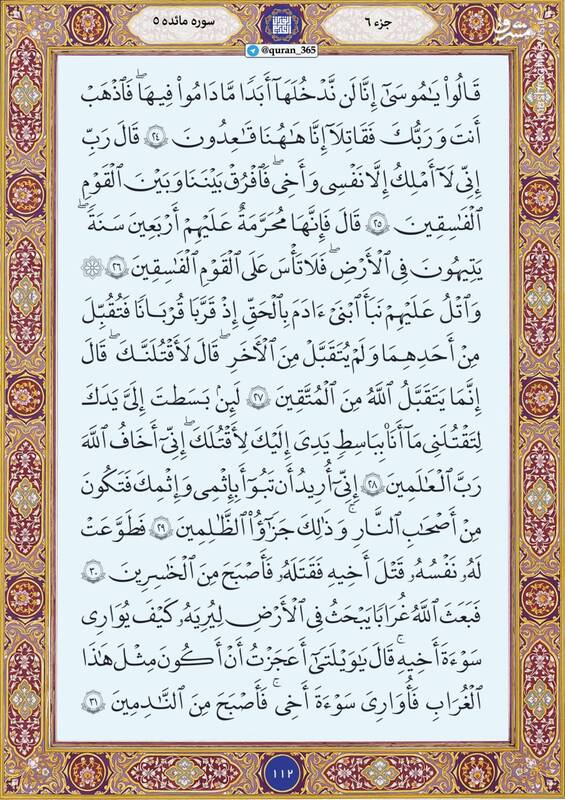 جزء ۶
سوره مائده ۵
@quran_365
قَالُوا۟ يَـٰمُوسَىٰٓ إِنَّا لَن نَّدْخُلَهَآ أَبَدًا مَّا دَامُوا۟ فِيهَا ۖ فَٱذْهَبْ
أَنتَ وَرَبُّكَ فَقَـٰتِلَآ إِنَّا هَـٰهُنَا قَـٰعِدُونَ ۲۴ قَالَ رَبِّ
إِنِّي لَآ أَمْلِكُ إِلَّا نَفْسِي وَأَخِي ۖ فَٱفْرُقْ بَيْنَنَا وَبَيْنَ ٱلْقَوْمِ
ٱلْفَـٰسِقِينَ ۲۵ قَالَ فَإِنَّهَا مُحَرَّمَةٌ عَلَيْهِمْ أَرْبَعِينَ سَنَةً ۛ
يَتِيهُونَ فِي ٱلْأَرْضِ ۚ فَلَا تَأْسَ عَلَى ٱلْقَوْمِ ٱلْفَـٰسِقِينَ ۲۶
وَٱتْلُ عَلَيْهِمْ نَبَأَ ٱبْنَيْ ءَادَمَ بِٱلْحَقِّ إِذْ قَرَّبَا قُرْبَانًا فَتُقُبِّلَ
مِنْ أَحَدِهِمَا وَلَمْ يُتَقَبَّلْ مِنَ ٱلْـَٔاخَرِ قَالَ لَأَقْتُلَنَّكَ ۖ قَالَ
إِنَّمَا يَتَقَبَّلُ ٱللَّهُ مِنَ ٱلْمُتَّقِينَ ۲۷ لَئِنۢ بَسَطتَ إِلَيَّ يَدَكَ
لِتَقْتُلَنِي مَآ أَنَا۠ بِبَاسِطٍ يَدِيَ إِلَيْكَ لِأَقْتُلَكَ ۖ إِنِّيٓ أَخَافُ ٱللَّهَ
رَبَّ ٱلْعَـٰلَمِينَ ۲۸ إِنِّيٓ أُرِيدُ أَن تَبُوٓأَ بِإِثْمِي وَإِثْمِكَ فَتَكُونَ
مِنْ أَصْحَـٰبِ ٱلنَّارِ ۚ وَذَٰلِكَ جَزَٰٓؤُا۟ ٱلظَّـٰلِمِينَ ۲۹ فَطَوَّعَتْ
لَهُۥ نَفْسُهُۥ قَتْلَ أَخِيهِ فَقَتَلَهُۥ فَأَصْبَحَ مِنَ ٱلْخَـٰسِرِينَ ۳۰
فَبَعَثَ ٱللَّهُ غُرَابًا يَبْحَثُ فِي ٱلْأَرْضِ لِيُرِيَهُۥ كَيْفَ يُوَٰرِي
سَوْءَةَ أَخِيهِ ۚ قَالَ يَـٰوَيْلَتَىٰٓ أَعَجَزْتُ أَنْ أَكُونَ مِثْلَ هَـٰذَا
ٱلْغُرَابِ فَأُوَٰرِيَ سَوْءَةَ أَخِي ۖ فَأَصْبَحَ مِنَ ٱلنَّـٰدِمِينَ ۳۱
۱۱۲